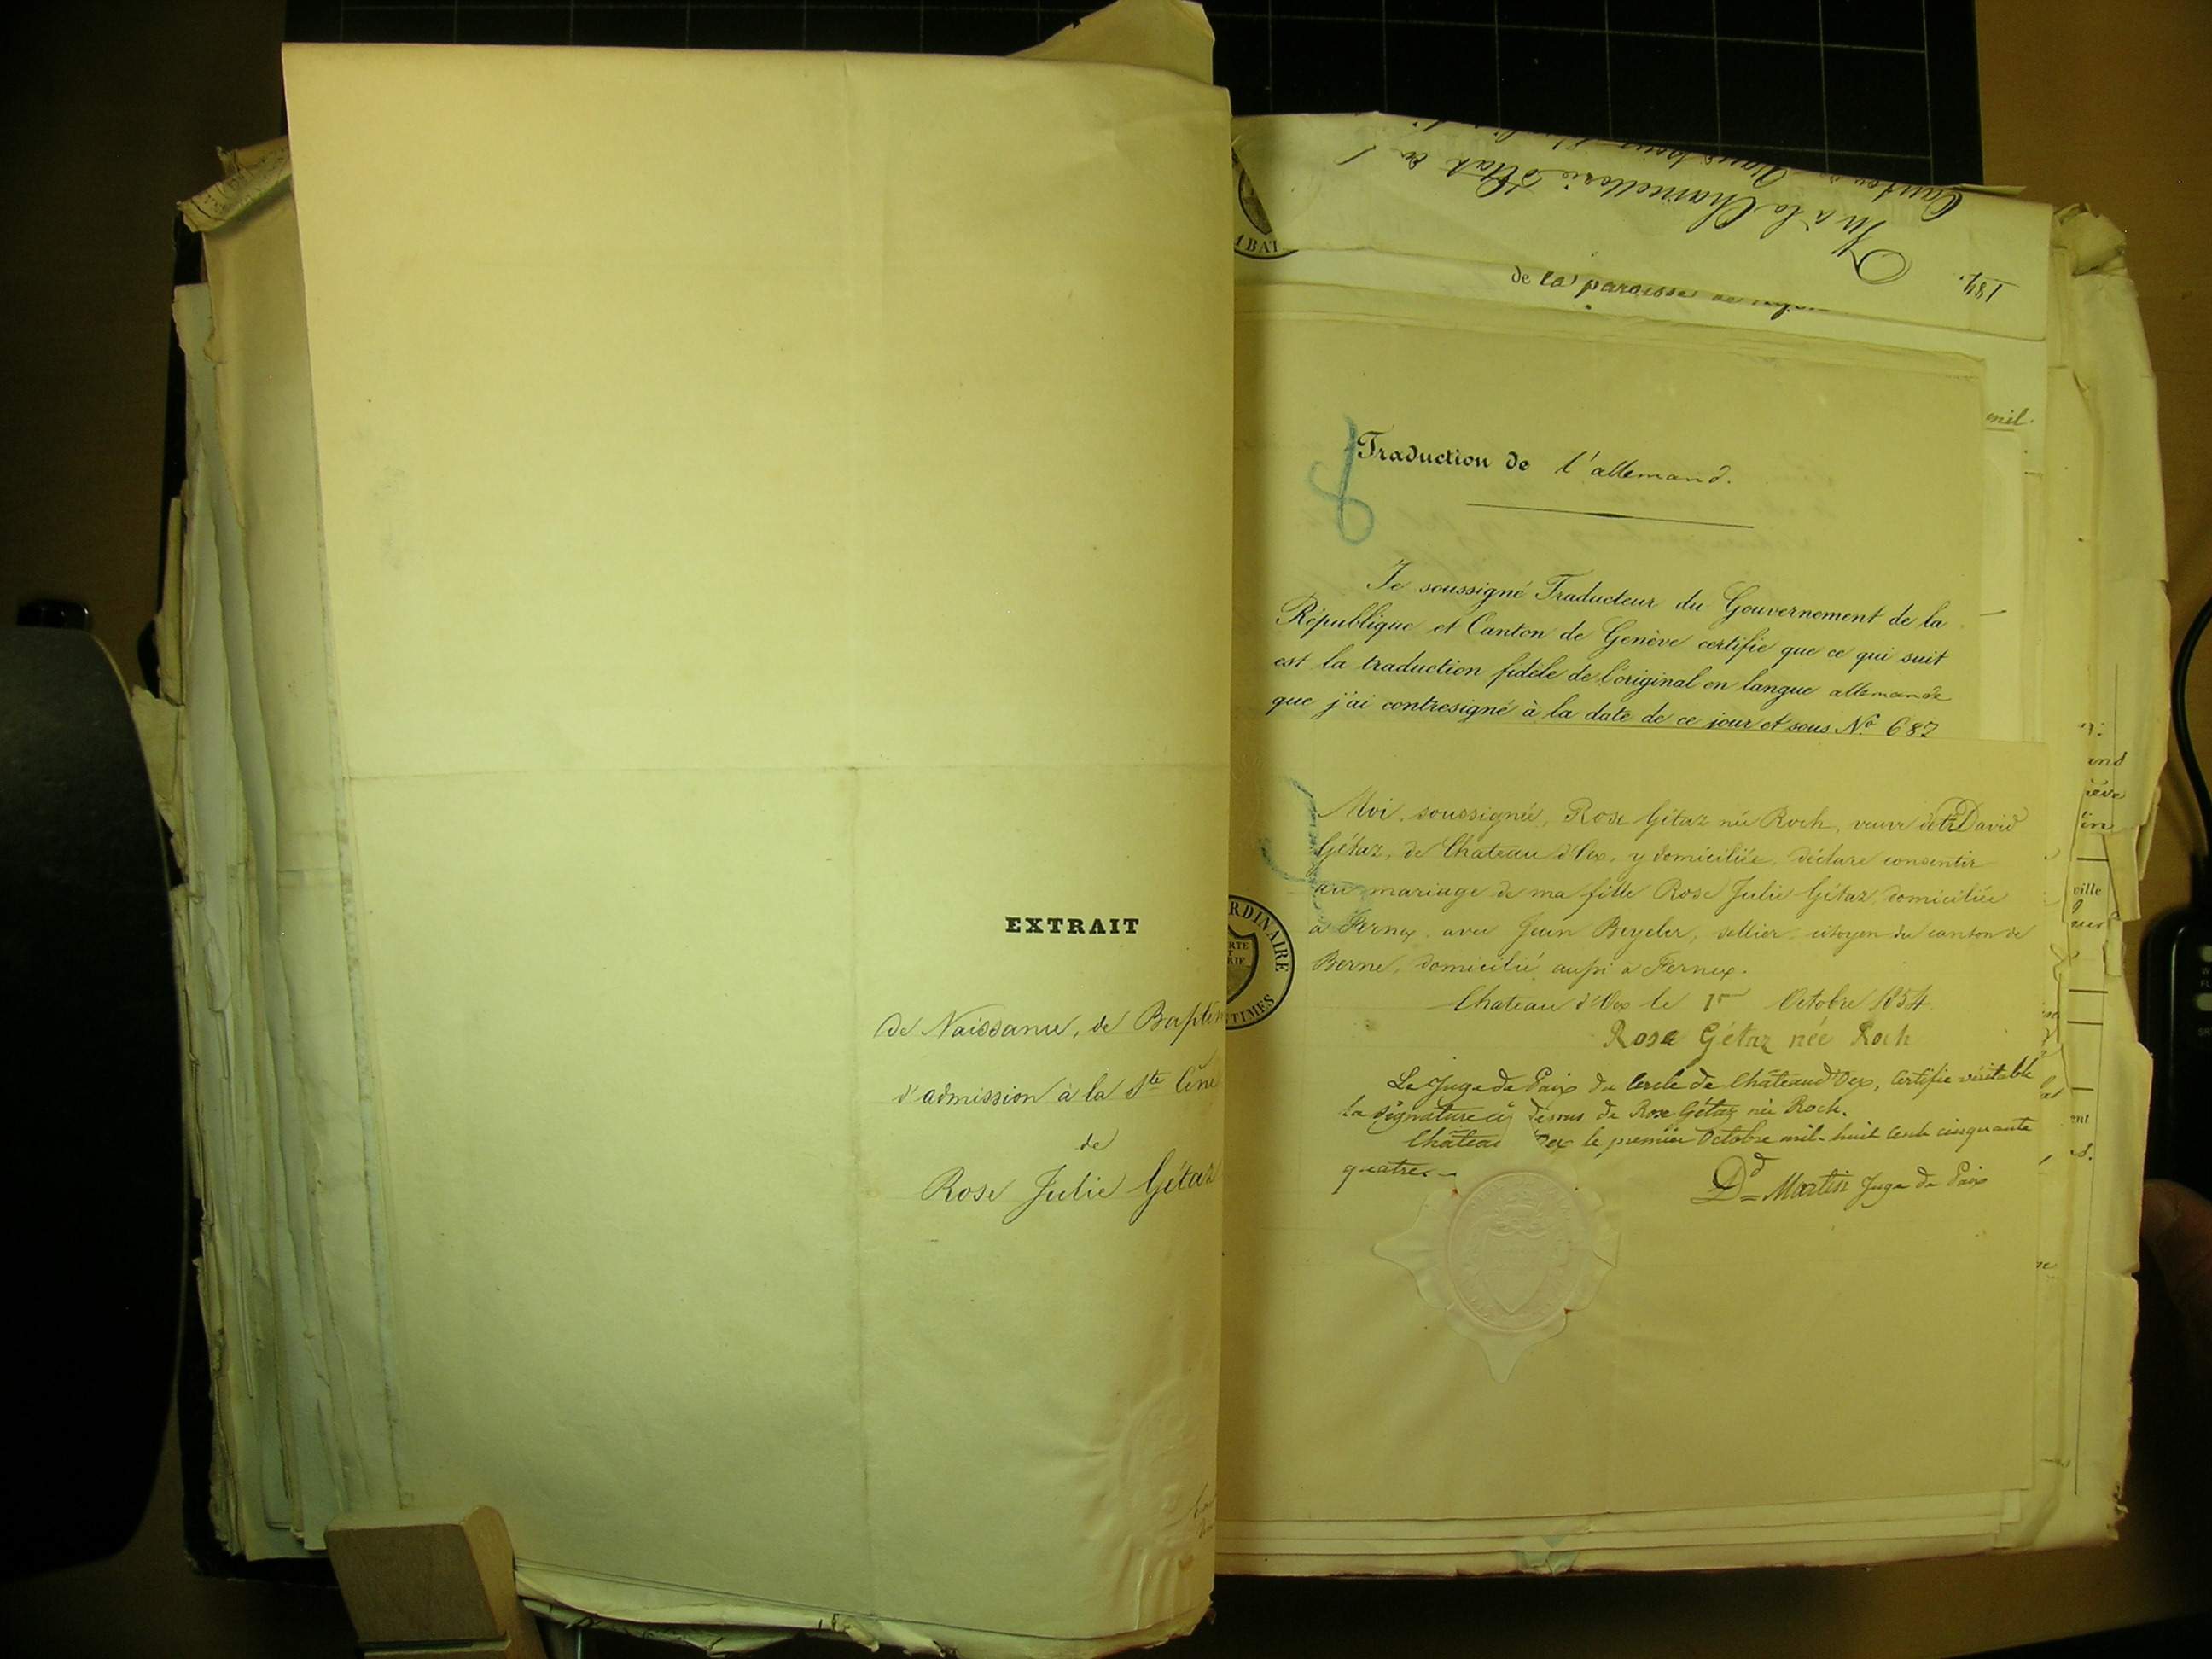 EXTRAIT
de Naissance, de Baptêm
d'admission à la Ste Cène
de
Rose Julie Gétaz
Vu à la Chancellerie d'Etat
Canton de
184
MBAT
de la paroisse de
mil.
8
Traduction de l'allemand.
Je soussigné Traducteur du Gouvernement de la
République et Canton de Genève certifie que ce qui suit
est la traduction fidèle de l'original en langue allemande
que j'ai contresigné à la date de ce jour et sous No 687
Moi, soussignée, Rose Gétaz née Roch, veuve de David
Gétaz, de Chateau d'Oex, y domiciliée, déclare consentir
au mariage de ma fille Rose Julie Gétaz, domiciliée
à Fernex, avec Jean Beyeler, sellier, citoyen du canton de
Berne, domicilié aussi à Fernex.
Chateau d'Oex le 1er Octobre 1854
Rose Gétaz née Roch
Le Juge de Paix du Cercle de Châteaud'Oex, certifie véritable
la signature ci dessus de Rose Gétaz née Roch.
Château Oex le premier Octobre mil huit cent cinquante
quatre.
Dd Martin Juge de Paix
RDINAIRE
TIMES
ville